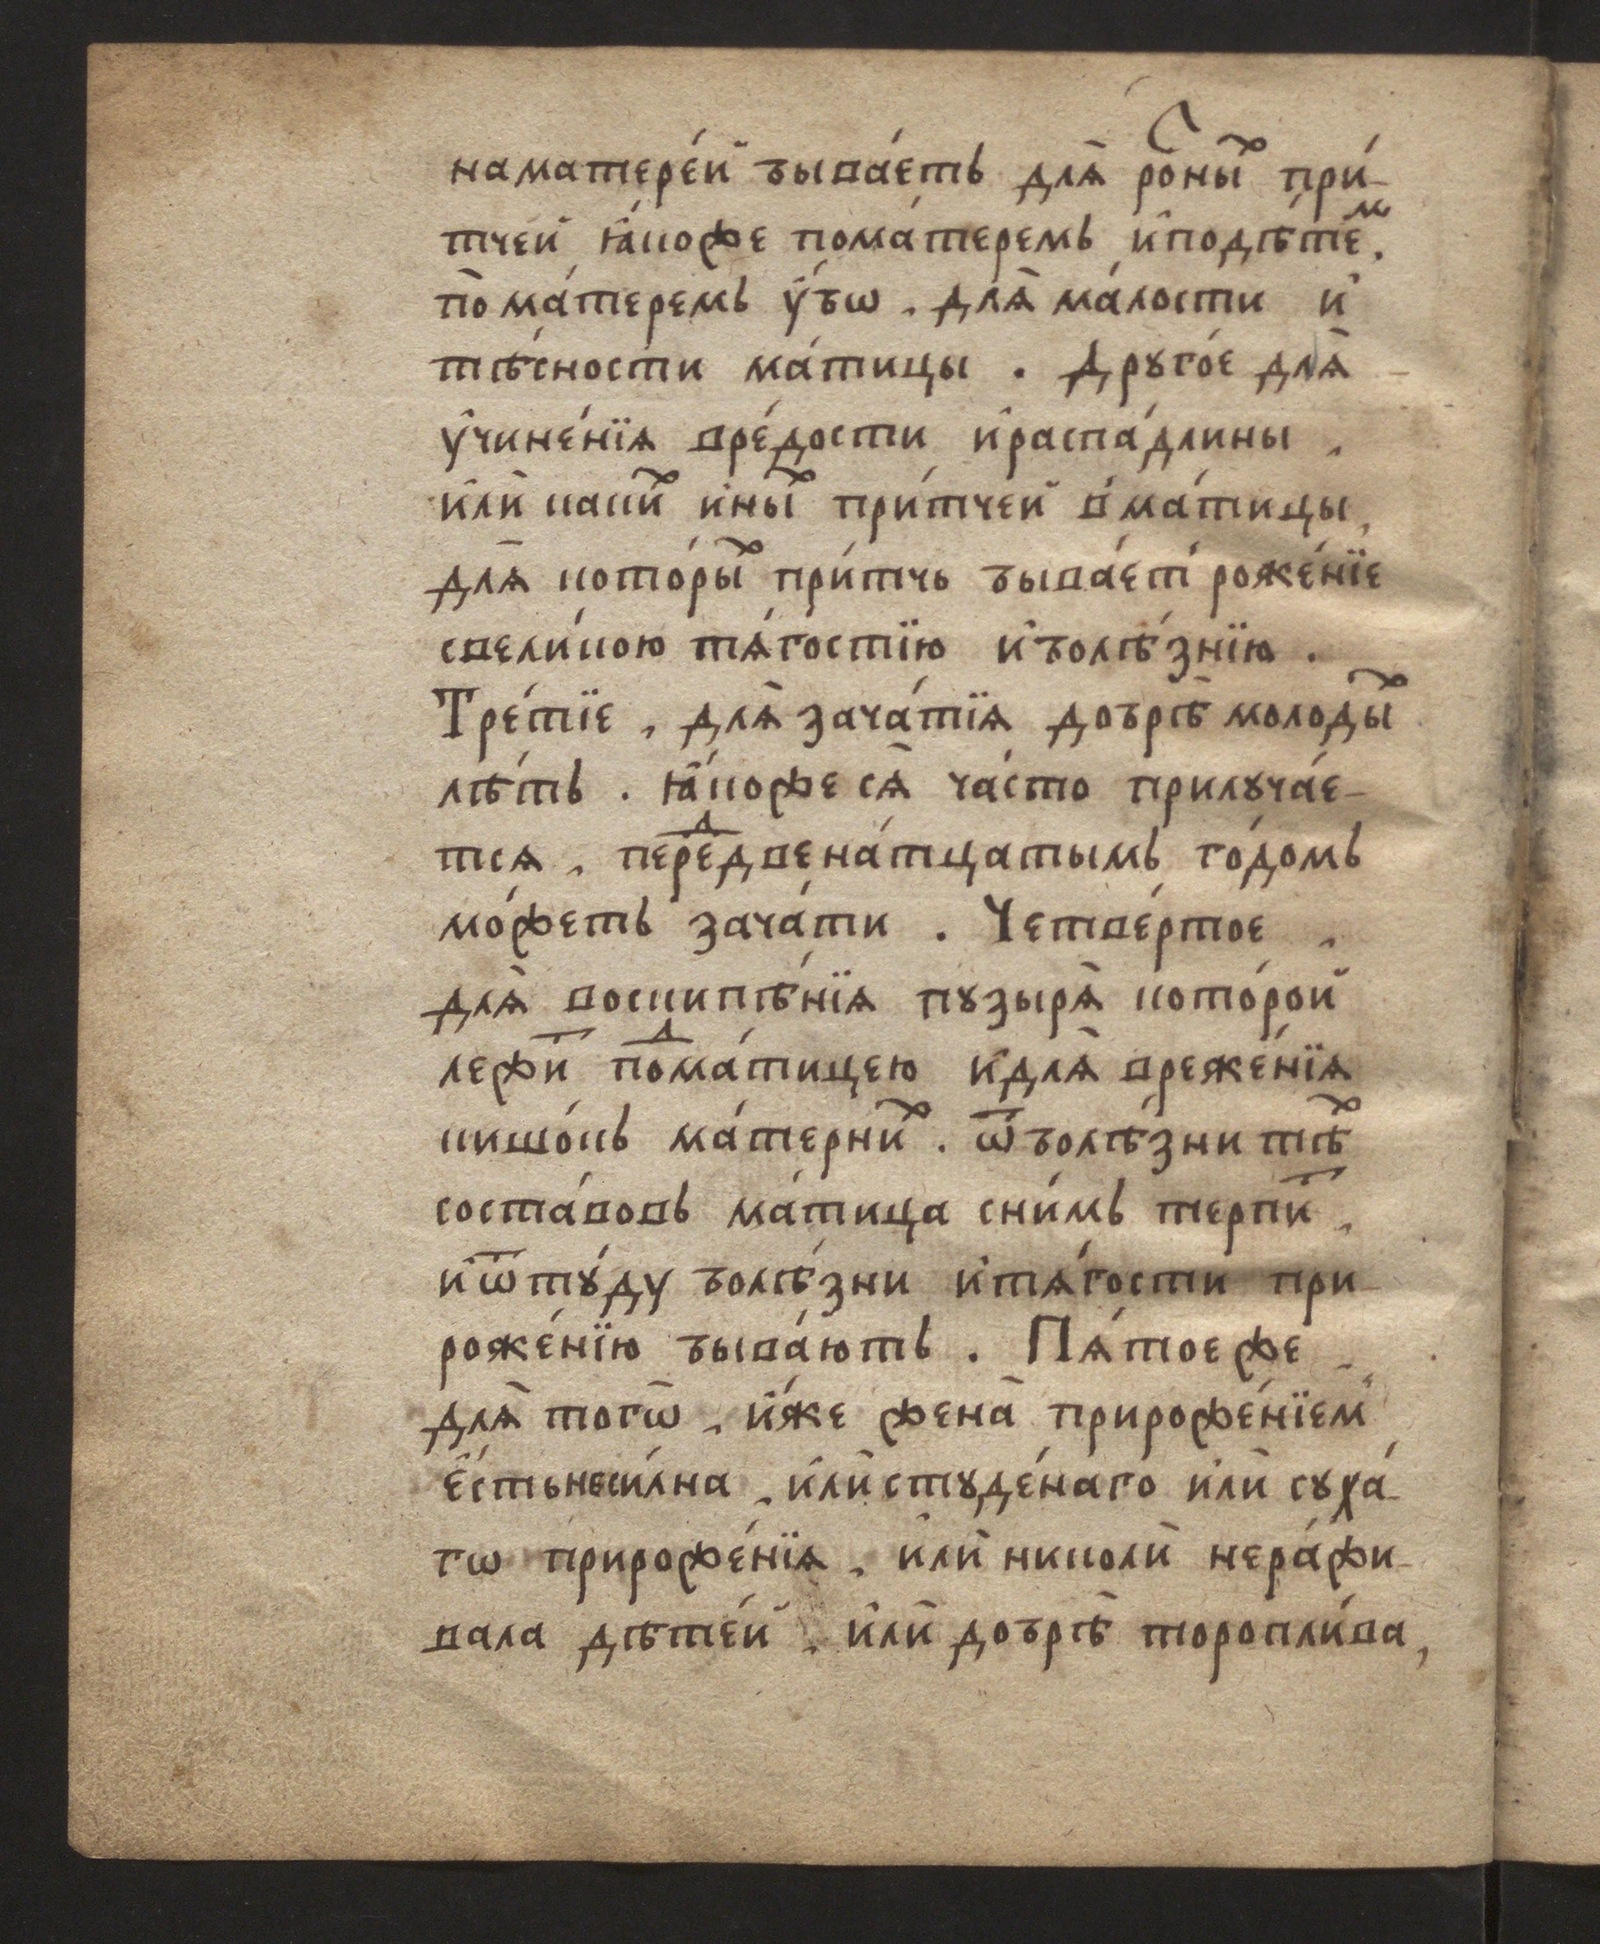 наматере́й быва́етъ для̀ ро́зныⷯ при́-
тчей ꙗ҆́коже пома́теремъ и҆подѣ́теⷨ.
по̀ ма́теремъ ᲂу҆́бѡ, для̀ ма́лости и҆
тѣ́сности ма́тицы. Друго́е для̀
ᲂу҆чине́нїѧ вре́дости и҆распа́длины,
и҆лѝ каки́ⷯ и҆ны́ⷯ при́тчей в̾ма́тицы,
для̀ кото́рыⷯ при́тчь быва́ет̾ роже́нїе
свели́кою тѧ́гостїю и҆болѣ́знїю.
Тре́тїе, для̀ зача́тїѧ добрѣ̀ молоды́ⷯ
лѣ́тъ. ꙗ҆́коже сѧ̀ ча́сто прилꙋча́е-
тсѧ, переⷣдвена́тцатымъ го́домъ
мо́жетъ зача́ти. Четве́ртое,
для̀ воскипѣ́нїѧ пꙋзырѧ̀ кото́рой
лежи́ⷮ поⷣма́тицею и҆для̀ вреже́нїѧ
кишо́къ ма́терниⷯ. ѿболѣ́зни тѣ́ⷯ
соста́вовъ ма́тица сни́мъ терпи́ⷮ,
и҆ѿтꙋ́дꙋ болѣ́зни и҆тѧ́гости при-
роже́нїю быва́ютъ. Пѧ́тоеже
для̀ тогѡ̀, и҆́же жена̀ прироже́нїем̾
є҆́стьнеси́лна, и҆лѝстꙋде́наго и҆лѝ сꙋха́-
гѡ прироже́нїѧ, и҆лѝ николѝ нера́жи-
вала дѣте́й, и҆лѝ добрѣ̀ торопли́ва,